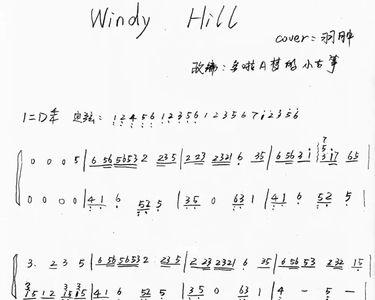 Windy Hill
cover：羽肿
改编：多啦A梦的小古筝
1=D 4/4 定弦：1 2 4 5 6 1 2 3 5 6 1 2 3 5 6 7 i 2 3 5 6
0 0 0 5 | 6 56 5653 2 23 5 | 2 23 2321 6 35 | 6 56 3 i
0 0 0 0 | 4 1 6 52 5 | 3 5 0 63 1 | 4 1 6 52 5 |
3. 2 3 5 | 6 56 5653 2 23 5 | 2 23 2321 6 35 | 6 56 53 2 32 15
| 4 1 6 52 5 | 3 5 0 63 1 | 4 - 5 - |